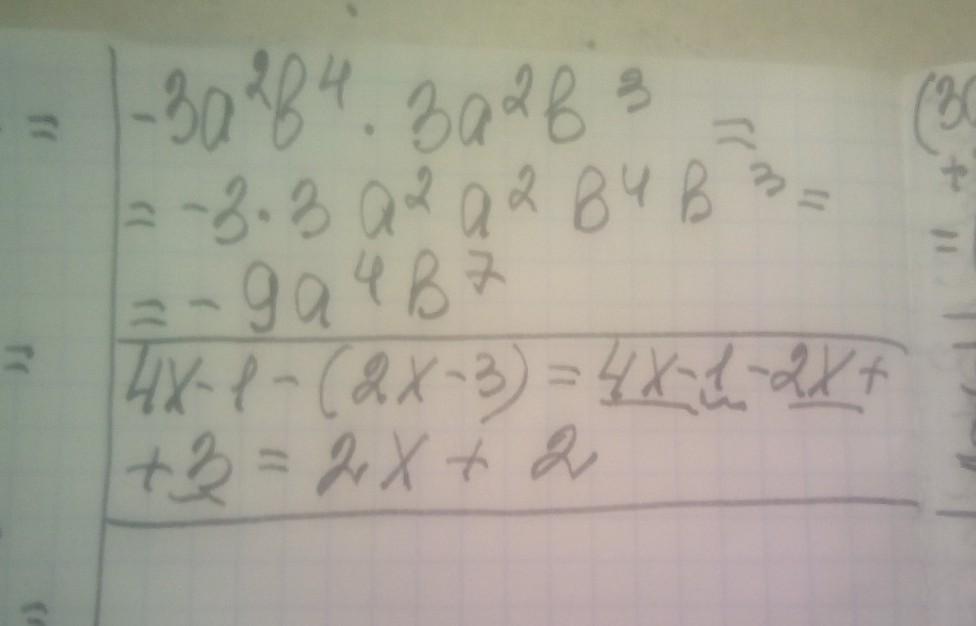 = -3a²b⁴ · 3a²b³ = (3
= -3·3 a² a² b⁴ b³ = +
= -9a⁴b⁷ =
= 4x-1-(2x-3) = 4x-1-2x+
+3 = 2x + 2
=